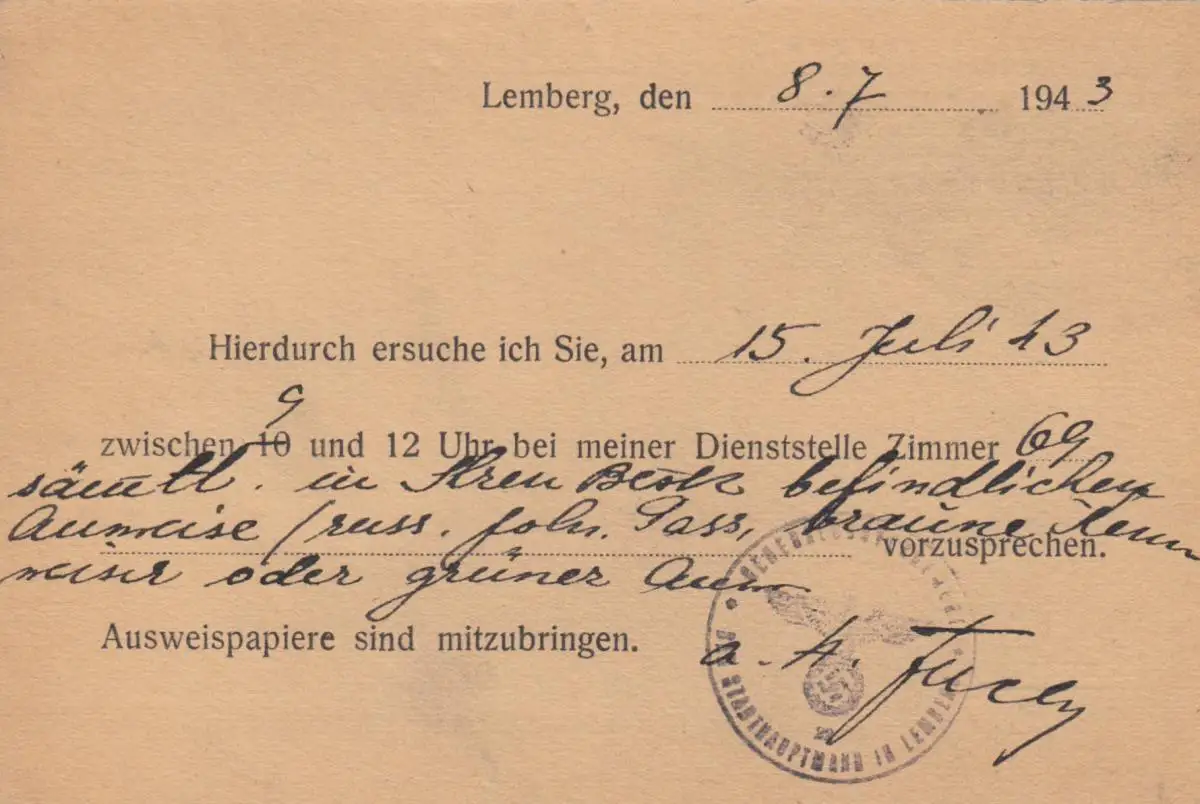 Lemberg, den 8.7 1943
Hierdurch ersuche ich Sie, am 15. Juli 43
9
zwischen 10 und 12 Uhr bei meiner Dienststelle Zimmer 69
sämtl. in Ihren Besitz befindlichen
Ausweise (russ. poln. Pass, braune Kenn
vorzusprechen.
weiser oder grüner Ausw
Ausweispapiere sind mitzubringen.
DER STADTHAUPTMANN IN LEMBERG